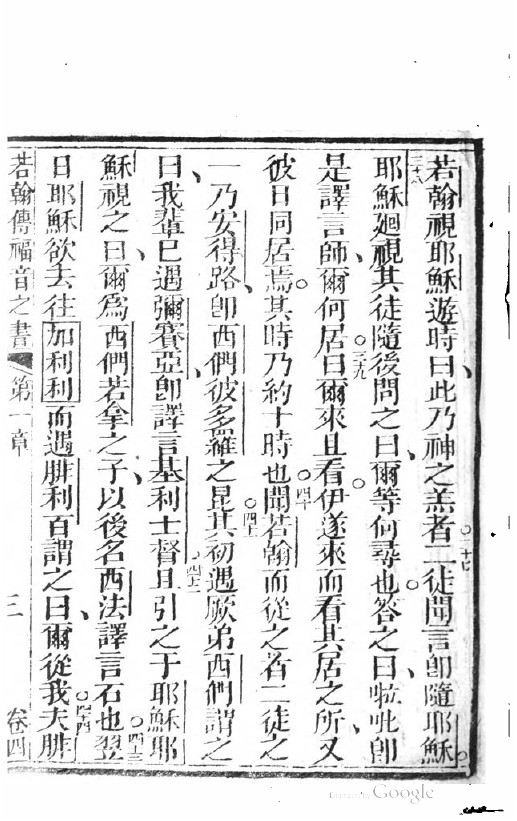 若翰視耶穌遊時曰此乃神之羔者○二徒聞言即隨耶穌○
耶穌廻視其徒隨後問之曰爾等何尋也○答之曰㕸吡即
是譯言師爾何居○曰爾來且看○伊遂來而看其居之所又
彼日同居焉○其時乃約十時也○聞若翰而從之者二徒之
一乃安得路即西們彼多羅之昆○其初遇厥弟西們謂之
曰我輩已遇彌賽亞即譯言基利士督○且引之于耶穌耶
穌視之曰爾為西們若拿之子以後名西法譯言石也○翌
日耶穌欲去往加利利而遇腓利百謂之曰爾從我○夫腓
若翰傳福音之書
第一章
三
卷四
三十七
三十八
三十九
四十
四十一
四十二
四十三
四十四
Google